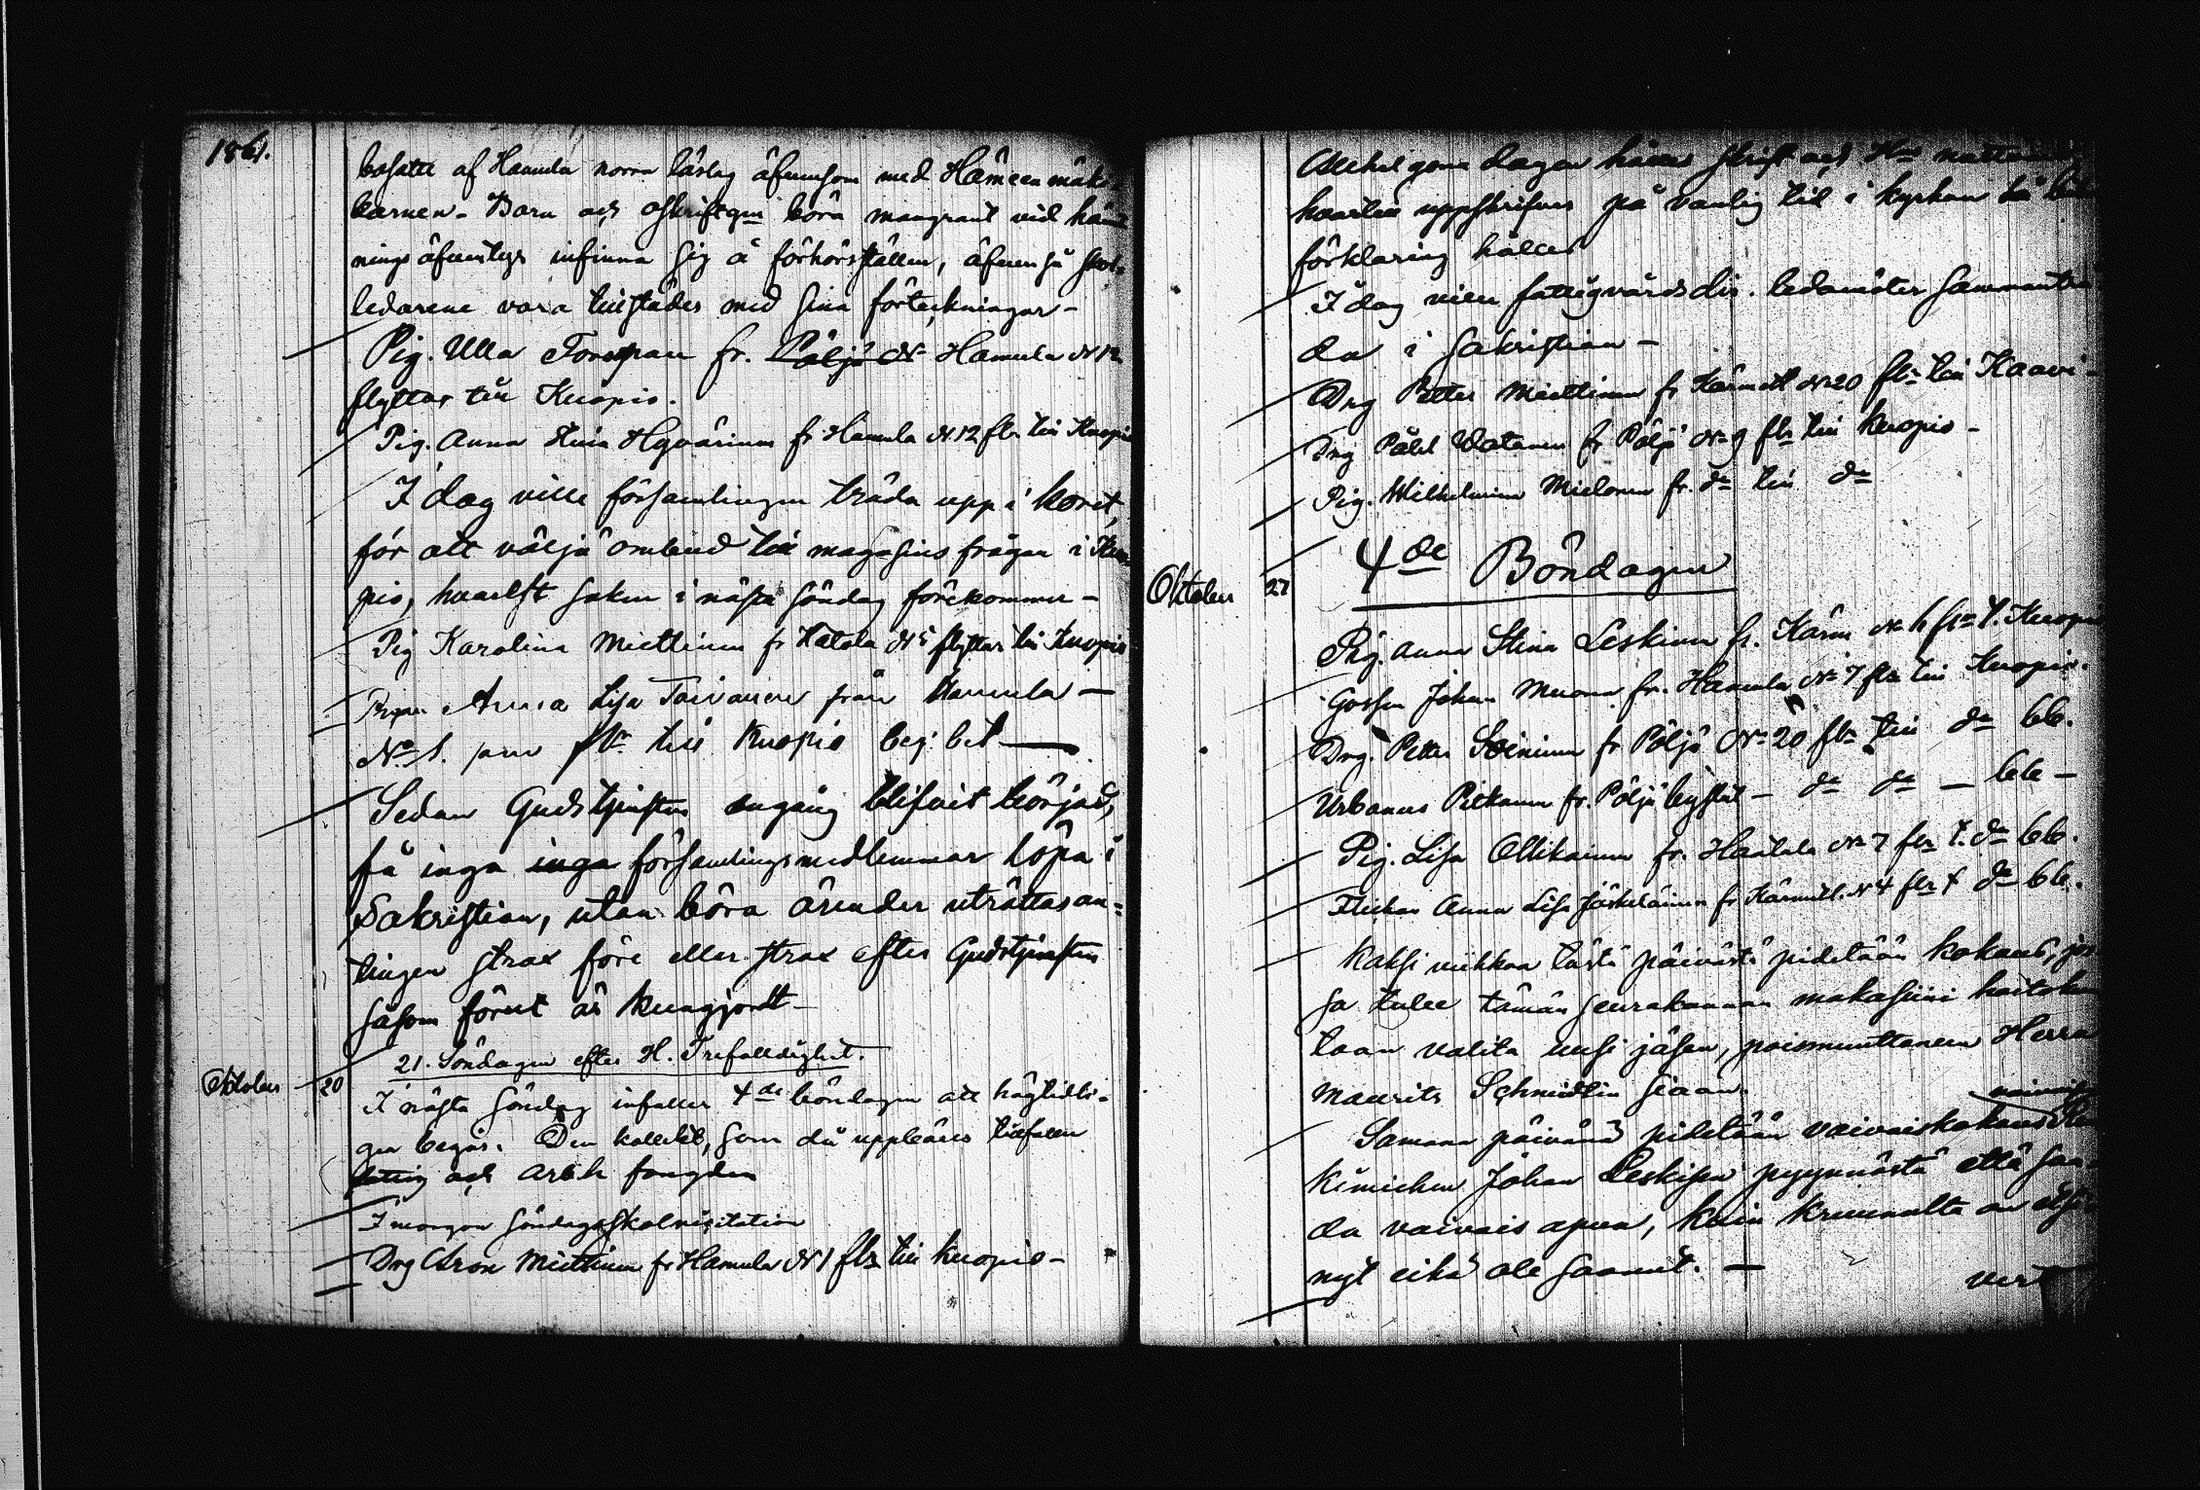 1861.
bosatte af Hamula norra läslag äfvensom med Hämeenmäki
barnen. Barn och oskriftgna böra mangrant vid häm
nings äfventyr infinna sig å förhörsställen, äfven så skol-
ledarene vara tillstädes med sina förteckningar -
Pig. Ulla fr. Pöljä N Hamula N 12
flyttar till Kuopio.
Pig. Anna Stina Hyvärinen fr Hamula N. 12 flr till Kuopio
I dag ville församlingen träda upp i koret
för att välja ombud till magasins frågan i Kuo
pio, hvarest saken i nästa söndag förekommer -
Pig Karolina Miettinen fr Hatala N 5 flyttar till Kuopio
Pigan Anna Lisa Toivanen från Hamula -
No 1. flr till Kuopio beg. bet.
Sedan Gudstjensten engång blifvit börjad,
få inga inga församlingsmedlemmar löpa i
Sakristian, utan böra ärender uträttas an-
tingen strax före eller strax efter Gudstjensten
såsom förut är kungjordt -
21. Söndagen efter H. Trefaldighet.
Oktober 20
I nästa söndag infaller 4de böndagen att högtidli-
gen begås. Den kollekt, som då uppbäres tillfaller
fattig och arb.h fångden
I morgon söndagsskolvisitation
Drg Aron Miettinen fr Hamula N 1 flr till Kuopio -
dagen hålles skrift och Hns natt
uppskrifves på vanlig tid i kyrkan
förklaring hålles
I dag ville fattigvårds dir. ledamöter sammanträ
da i Sakristian -
Drg Petter Miettinen fr Kärmet N 20 flr till Kaavi -
Drg Påhl Vatanen fr Pöljä N 9 flr till Kuopio -
Pig. Wilhelmina Mielonen fr. do till do
4de Böndagen
Oktober 27
Pig. Anna Stina Leskinen fr. Kärm N flr t. Kuopio
Gossen Johan Muona fr. Hamula N 7 flr till Kuopio.
Drg. Petter Soininen fr Pöljä N 20 flr till do bb.
Urbanus Pitkanen fr. Pöljä - do do - bb -
Pig. Lisa Ollikainen fr. Hatala N 7 flr t. do bb.
Flickan Anna Lisa Jääskeläinen fr Kärmetl. N 4 flr t do bb.
Kaksi viikkoa tästä päivästä pidetään kokous, jos
sa tulee tämän seurakunnan makasiini hoitokun
taan valita uusi jäsen, poismuuttaneen Herra
Maurits Schmidtin siaan.
Samana päivänä pidetään vaivaiskokous
Johan Leskisen pyynnöstä että saa
da vaivais apua, kuin kruunulta on
nyt eikä ole saanut. -